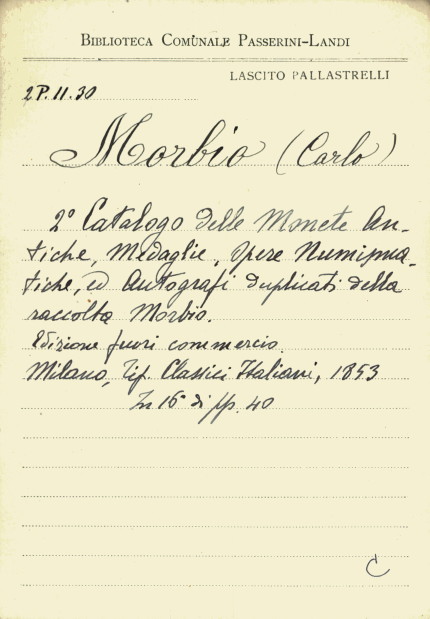 BIBLIOTECA COMUNALE PASSERINI-LANDI
LASCITO PALLASTRELLI
2P.11.30
Morbio (Carlo)
2° Catalogo delle Monete An-
tiche, Medaglie, Opere Numisma-
tiche, ed Autografi duplicati della
raccolta Morbio.
Edizione fuori commercio.
Milano, Tip. Classici Italiani, 1853
In 16° di pp. 40
C